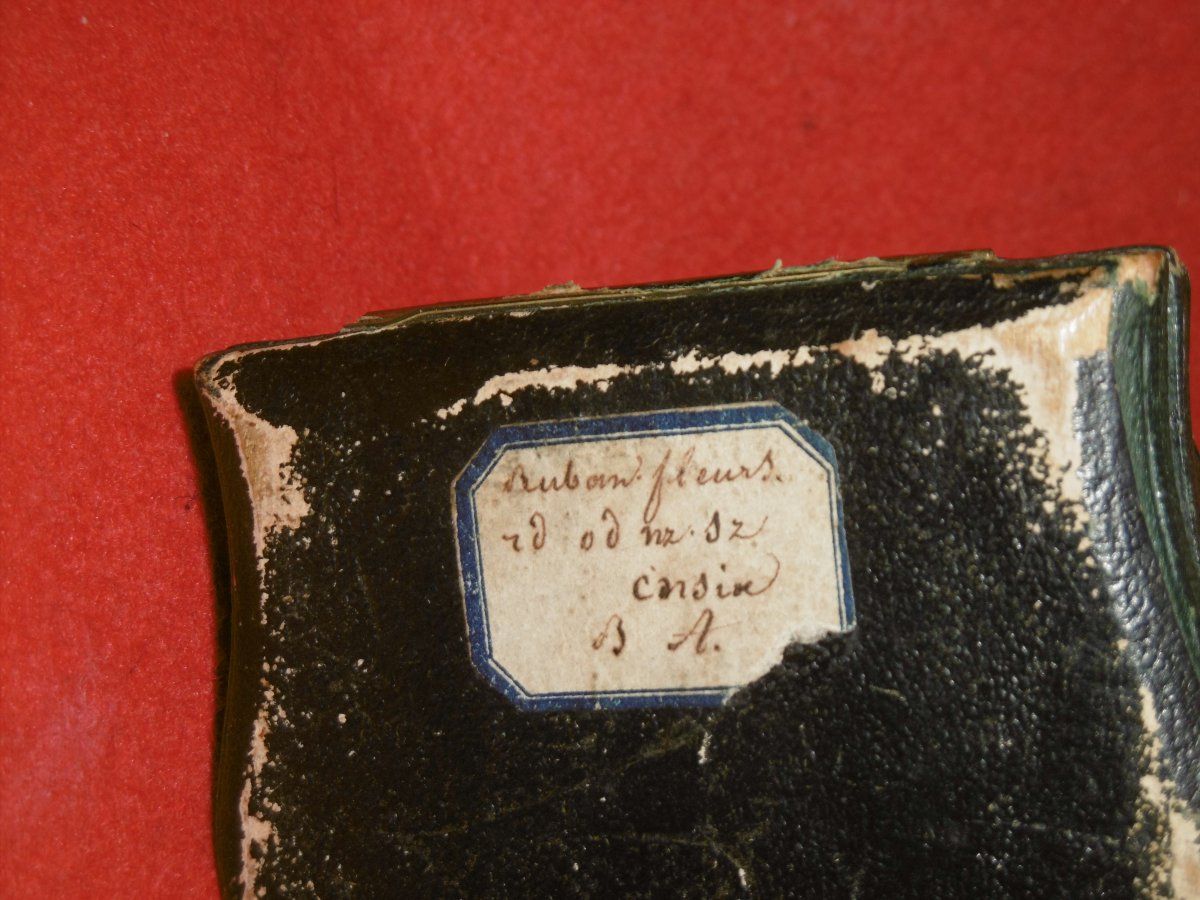 Ruban fleurs.
rd od nz. sz
cnsix
B A.